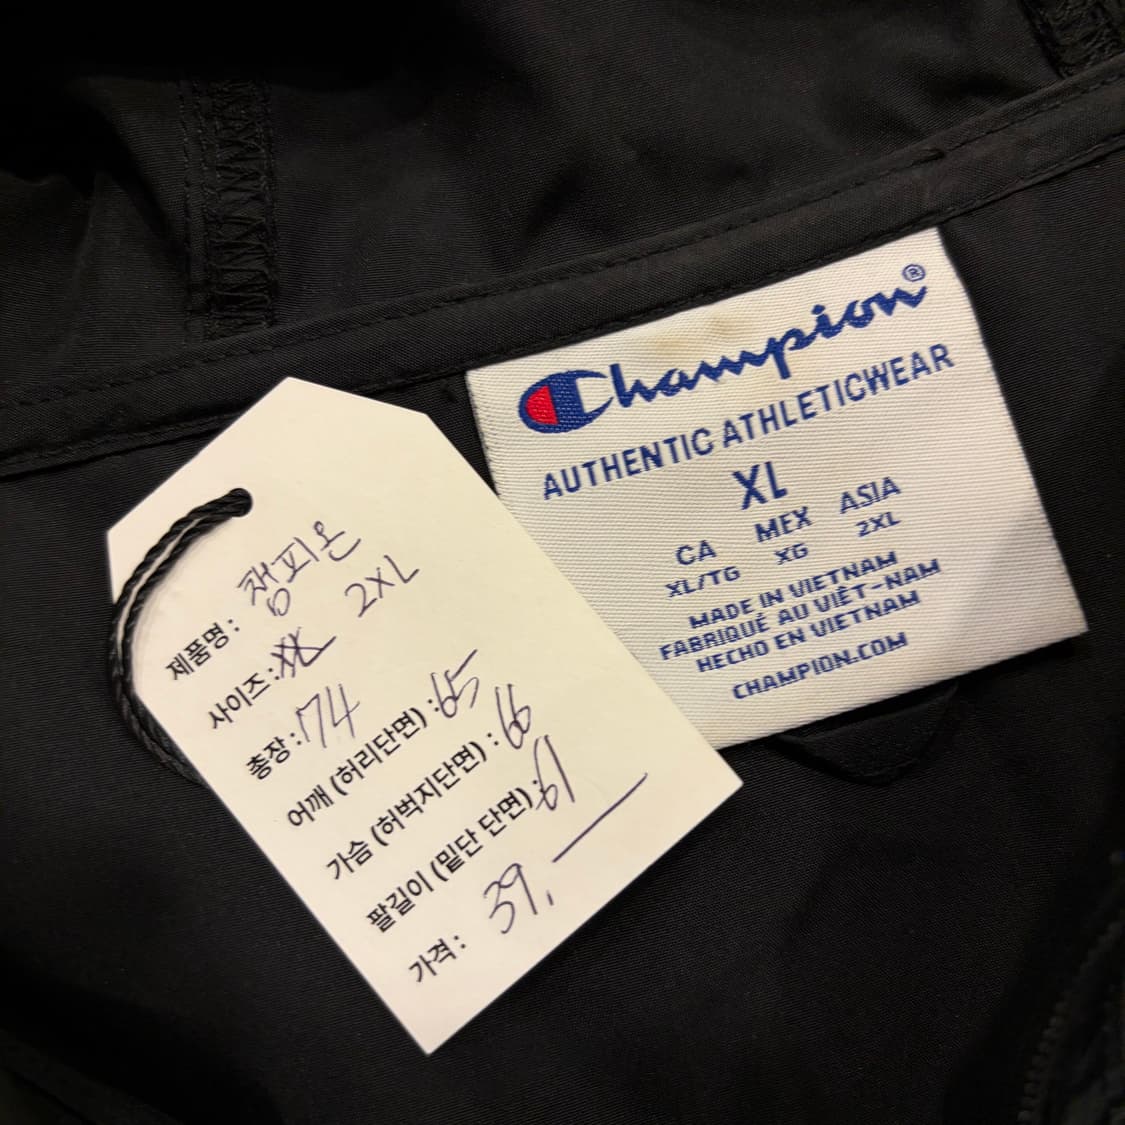 제품명: 챔피온
사이즈: 2XL
총장: 74
어깨 (허리단면): 65
가슴 (허벅지단면): 66
팔길이 (밑단 단면): 61
가격: 39,
Champion®
AUTHENTIC ATHLETICWEAR
XL
CA MEX ASIA
XL/TG XG 2XL
MADE IN VIETNAM
FABRIQUÉ AU VIÊT-NAM
HECHO EN VIETNAM
CHAMPION.COM